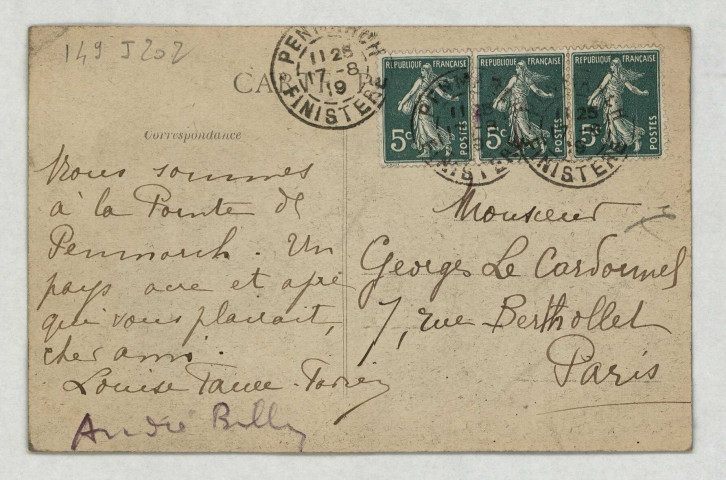 149 J 202
PENMARCH
11 25
17-8
19
FINISTERE
REPUBLIQUE FRANÇAISE
5c POSTES
REPUBLIQUE FRANÇAISE
5c POSTES
REPUBLIQUE FRANÇAISE
5c POSTES
Correspondance
Nous sommes
à la Pointe de
Penmarch. Un
pays acre et apre
qui vous plairait,
cher ami.
Louise Faure-Favier
André Billy
Monsieur
Georges Le Cardonnel
7, rue Berthollet
Paris